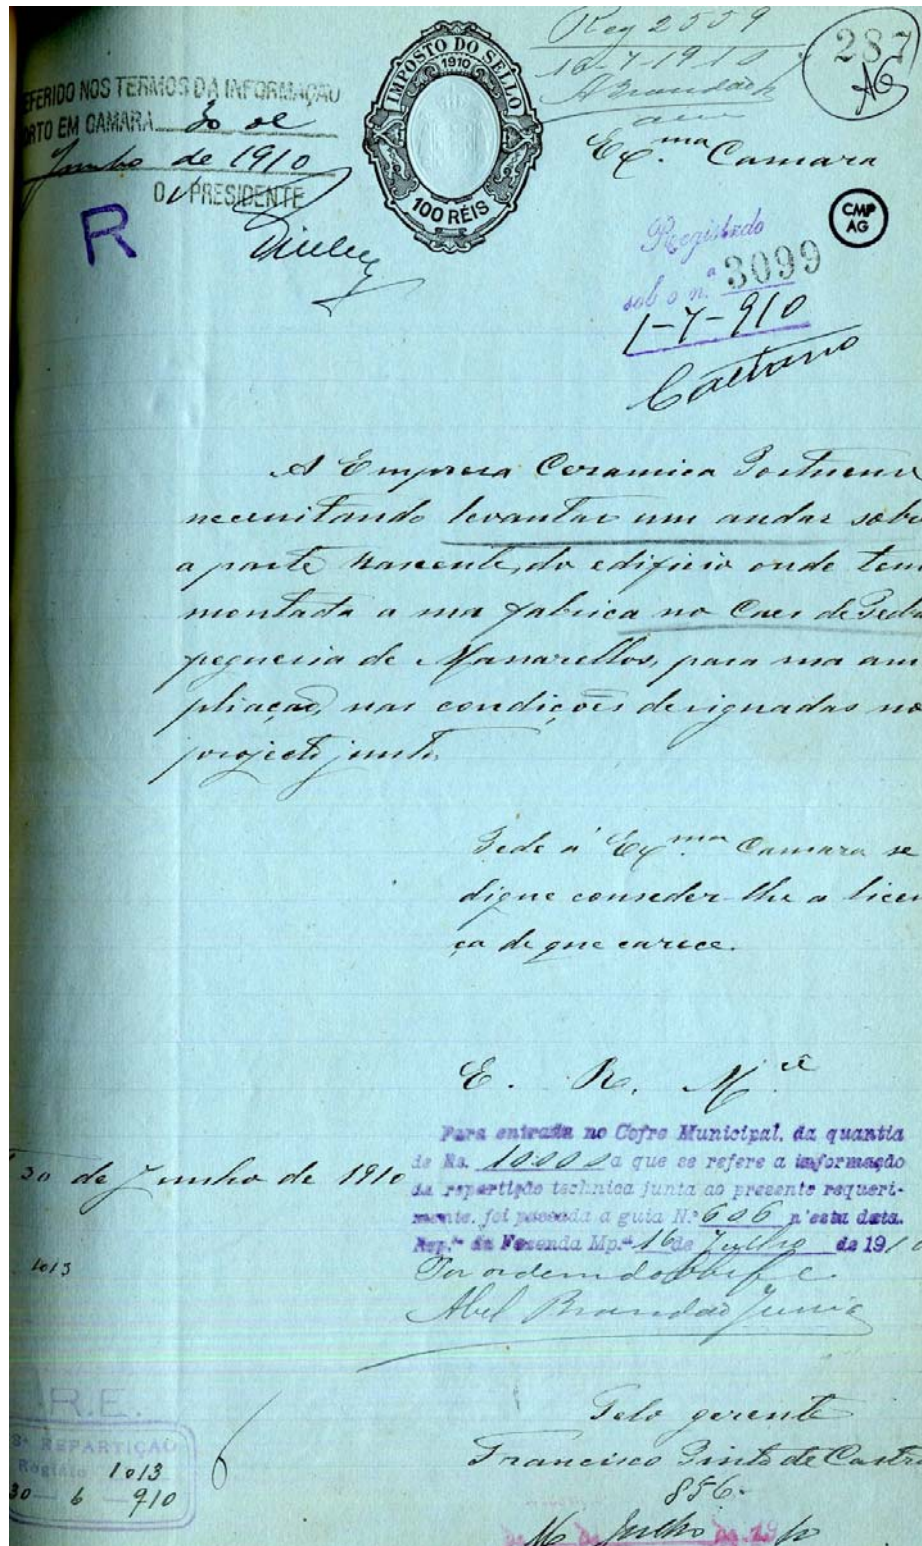 Reg 2559
16-7-1910
ABrandão
287
AG
EFERIDO NOS TERMOS DA INFORMAÇÃO
RTO EM CAMARA 30 de
Junho de 1910
O PRESIDENTE
R
IMPOSTO DO SELLO
1910
100 RÉIS
Ex.ma Camara
CMP
AG
Registado
sob o n.º 3099
1-7-910
Caetano
A Empresa Ceramica Portuense
necessitando levantar um andar sobre
a parte nascente, do edificio onde tem
montada a sua fabrica no Caes de Pedra
pegueira de Massarellos, para sua am
pliação, nas condições designadas no
projecto junto,
Pede á Ex.ma Camara se
digne conseder-lhe a licen
ça de que carece.
E. R. M.cê
30 de Junho de 1910
Para entrada no Cofre Municipal, da quantia
de Rs. 10000 a que se refere a informação
da repartição technica junta ao presente requeri-
mento, foi passada a guia N.º 606 n'esta data.
Rep.ão da Fazenda Mp.al 16 de Julho de 1910
Por ordem do
Abel Brandão Junior
1013
R.E.
3ª REPARTIÇÃO
Registo 1013
30-6-910
Pelo gerente
Francisco Pinto de Castro
856.
16 de Julho de 1910